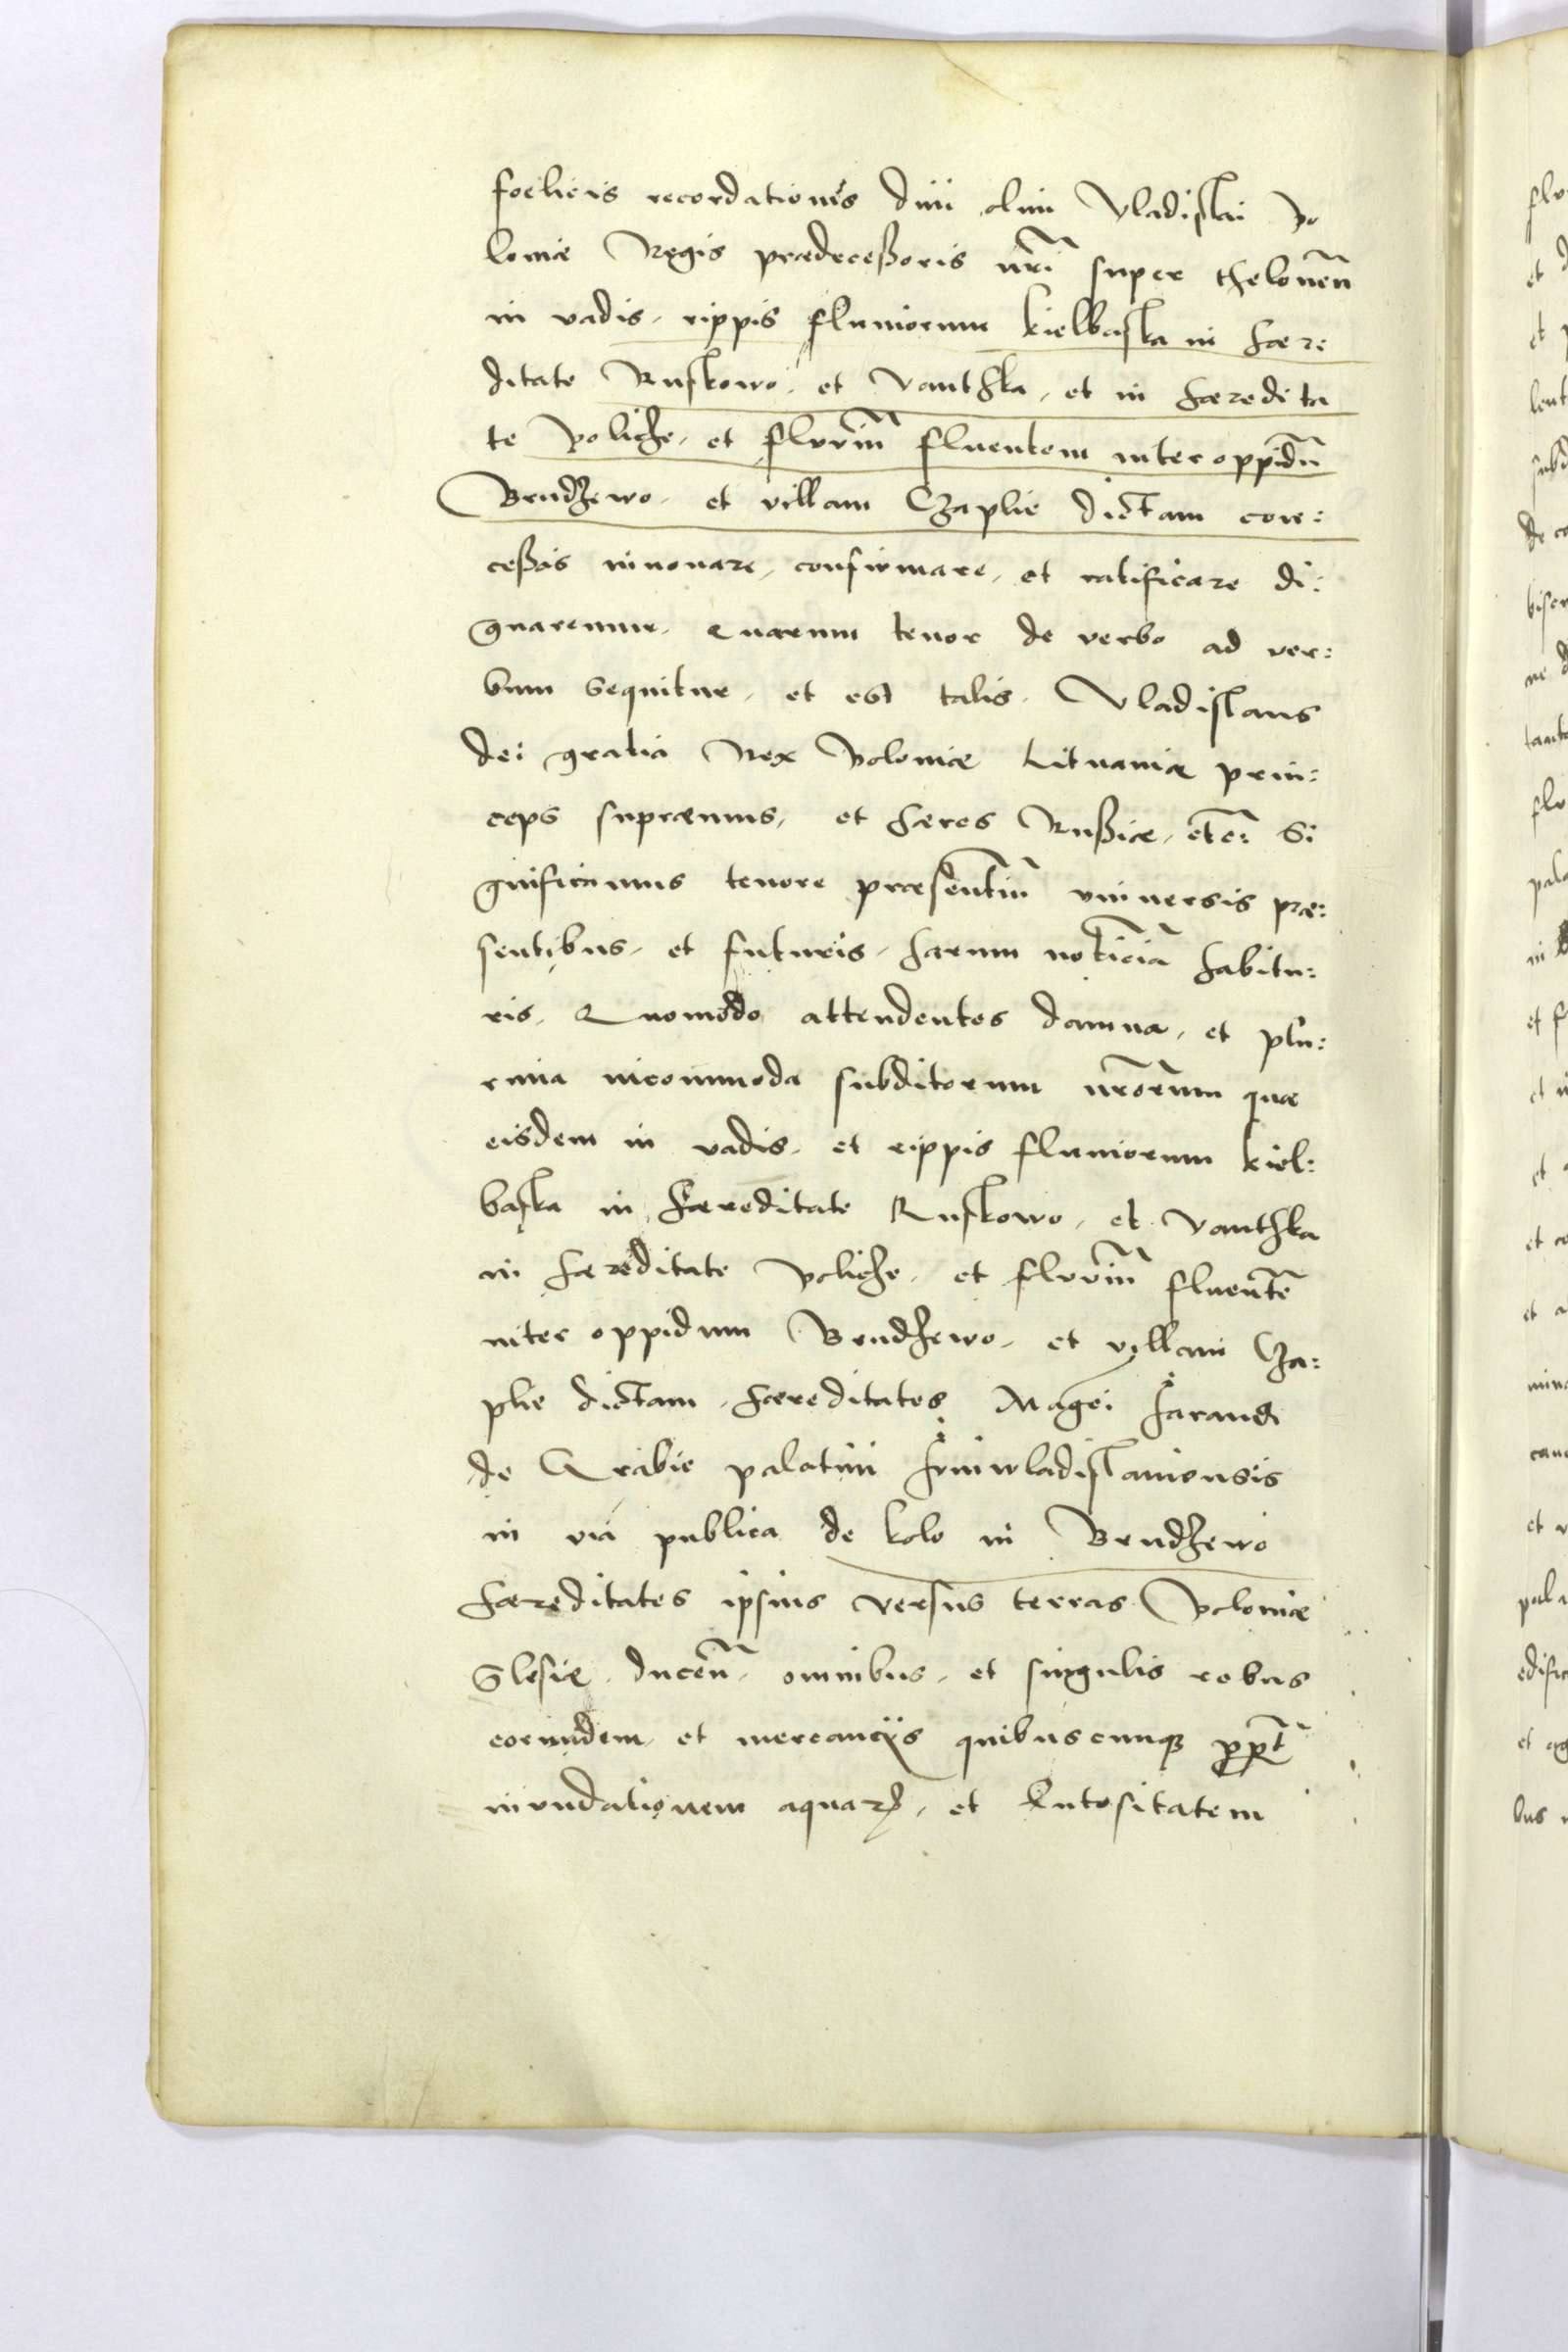 foelicis recordationis diui olim Vladislai Po
loniæ Regis prædeceßoris nr̃i super thelonẽn
in vadis, rippis fluuiorum kielbaska in hære
ditate Ruskowo, et vanthka, et in hæredita
te Policze, et fluuiũ fluentem inter oppidũ
Brudzewo, et villam Czaplie dictam con:
ceßas innouare, confirmare, et ratificare di:
gnaremur, Quarum tenor de verbo ad ver:
bum sequitur, et est talis. Vladislaus
dei gratia Rex Poloniæ Lituaniæ prin:
ceps supræmus, et hæres Rußiæ, etc: Si
gnificamus tenore præsentiũ vniuersis præ:
sentibus, et futuris, harum noticiã habitu:
ris, Quomodo attendentes damna, et plu:
rima incommoda subditorum nr̃orum quæ
eisdem in vadis, et rippis fluuiorum kiel:
baska in hæreditate Ruskowo, et vanthka
in hæreditate Policze, et fluuiũ fluentẽ
inter oppidum Brudzewo, et villam Cza:
plie dictam, hæreditates Magci Jarandi
de Grabie palatini Juniwladislauiensis
in via publica de kolo in Brudzewo
hæreditates ipsius versus terras Poloniæ
Slesiæ, ducẽn, omnibus, et singulis rebus
eorundem, et mercancijs quibuscunq; ꝓpt̃
inundationem aquarꝝ, et lutositatem